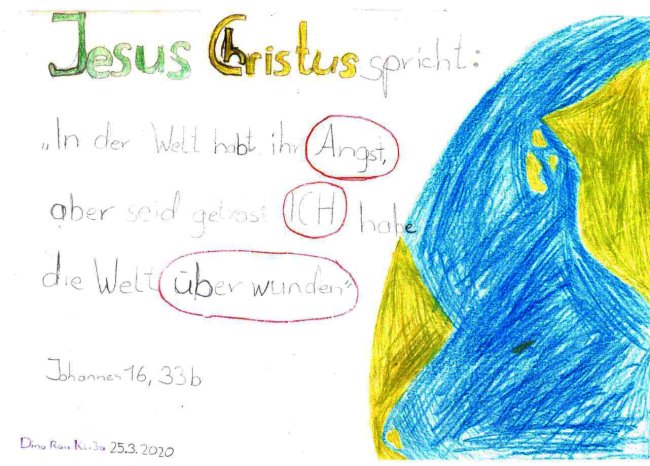 Jesus Christus spricht:
„In der Welt habt ihr Angst,
aber seid getrost ICH habe
die Welt überwunden"
Johannes 16, 33b
25.3.2020